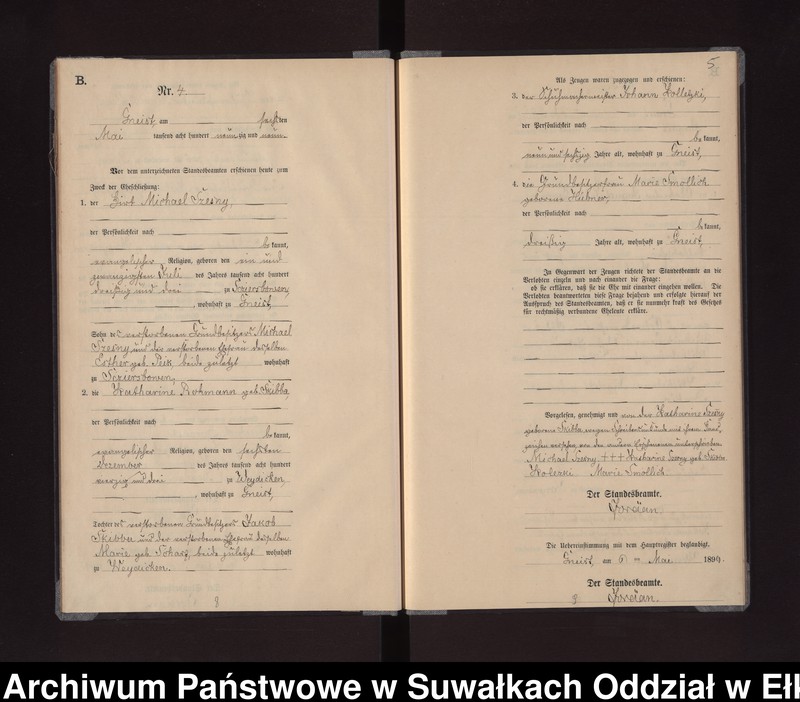 B.
Nr. 4
Gneist, am sechsten
Mai tausend acht hundert neun zig und neun.
Vor dem unterzeichneten Standesbeamten erschienen heute zum
Zweck der Eheschließung:
1. der Wirt Michael Szesny,
der Persönlichkeit nach
be kannt,
evangelischer Religion, geboren den ein und
zwanzigsten Juli des Jahres tausend acht hundert
dreißig und drei zu
, wohnhaft zu Gneist,
Sohn des verstorbenen Grundbesitzers Michael
Szesny und der verstorbenen Ehefrau desselben
Esther geb. beide zuletzt wohnhaft
zu
2. die Katharine geb. Skibba,
der Persönlichkeit nach
be kannt,
evangelischer Religion, geboren den sechsten
Dezember des Jahres tausend acht hundert
vierzig und drei zu Weydicken
, wohnhaft zu Gneist,
Tochter des verstorbenen Grundbesitzers Jakob
Skibba und der verstorbenen Ehefrau desselben
Marie geb. beide zuletzt wohnhaft
zu Weydicken.
5
Als Zeugen waren zugezogen und erschienen:
3. der Schuhmachermeister Johann
der Persönlichkeit nach
be kannt,
neun und sechzig Jahre alt, wohnhaft zu Gneist,
4. die Grundbesitzerfrau Marie Smollich
geborene Hübner,
der Persönlichkeit nach
be kannt,
dreißig Jahre alt, wohnhaft zu Gneist,
In Gegenwart der Zeugen richtete der Standesbeamte an die
Verlobten einzeln und nach einander die Frage:
ob sie erklären, daß sie die Ehe mit einander eingehen wollen. Die
Verlobten beantworteten diese Frage bejahend und erfolgte hierauf der
Ausspruch des Standesbeamten, daß er sie nunmehr kraft des Gesetzes
für rechtmäßig verbundene Eheleute erkläre.
Vorgelesen, genehmigt und von der Katharine Szesny
geborene Skibba wegen
Michael Szesny +++ Katharine Szesny geb. Skibba
Marie Smollich
Der Standesbeamte.
Die Uebereinstimmung mit dem Hauptregister beglaubigt.
Gneist, am 6 ten Mai 1899.
Der Standesbeamte.
Archiwum Państwowe w Suwałkach Oddział w Ełk